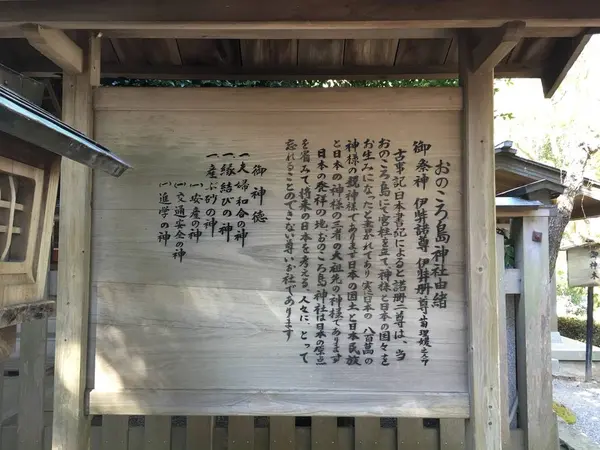 おのころ島神社由緒
御祭神 伊弉諾尊 伊弉册尊
古事記日本書記によると諾册二尊は、当
おのころ島にて宮柱を立て神様と日本の国々を
お生みになったと書かれてあり実に日本の八百萬の
神様の親神様であります日本の国土と日本民族
と日本の神様の三者の大祖先の神様であります
日本の発祥の地おのころ島神社は日本の原点
を省みて将来の日本を考える人々にとって
忘れることのできない尊いお社であります
御神徳
一夫婦和合の神
一縁結びの神
一産ぶ砂の神
㈠安産の神
㈠交通安全の神
㈠進学の神